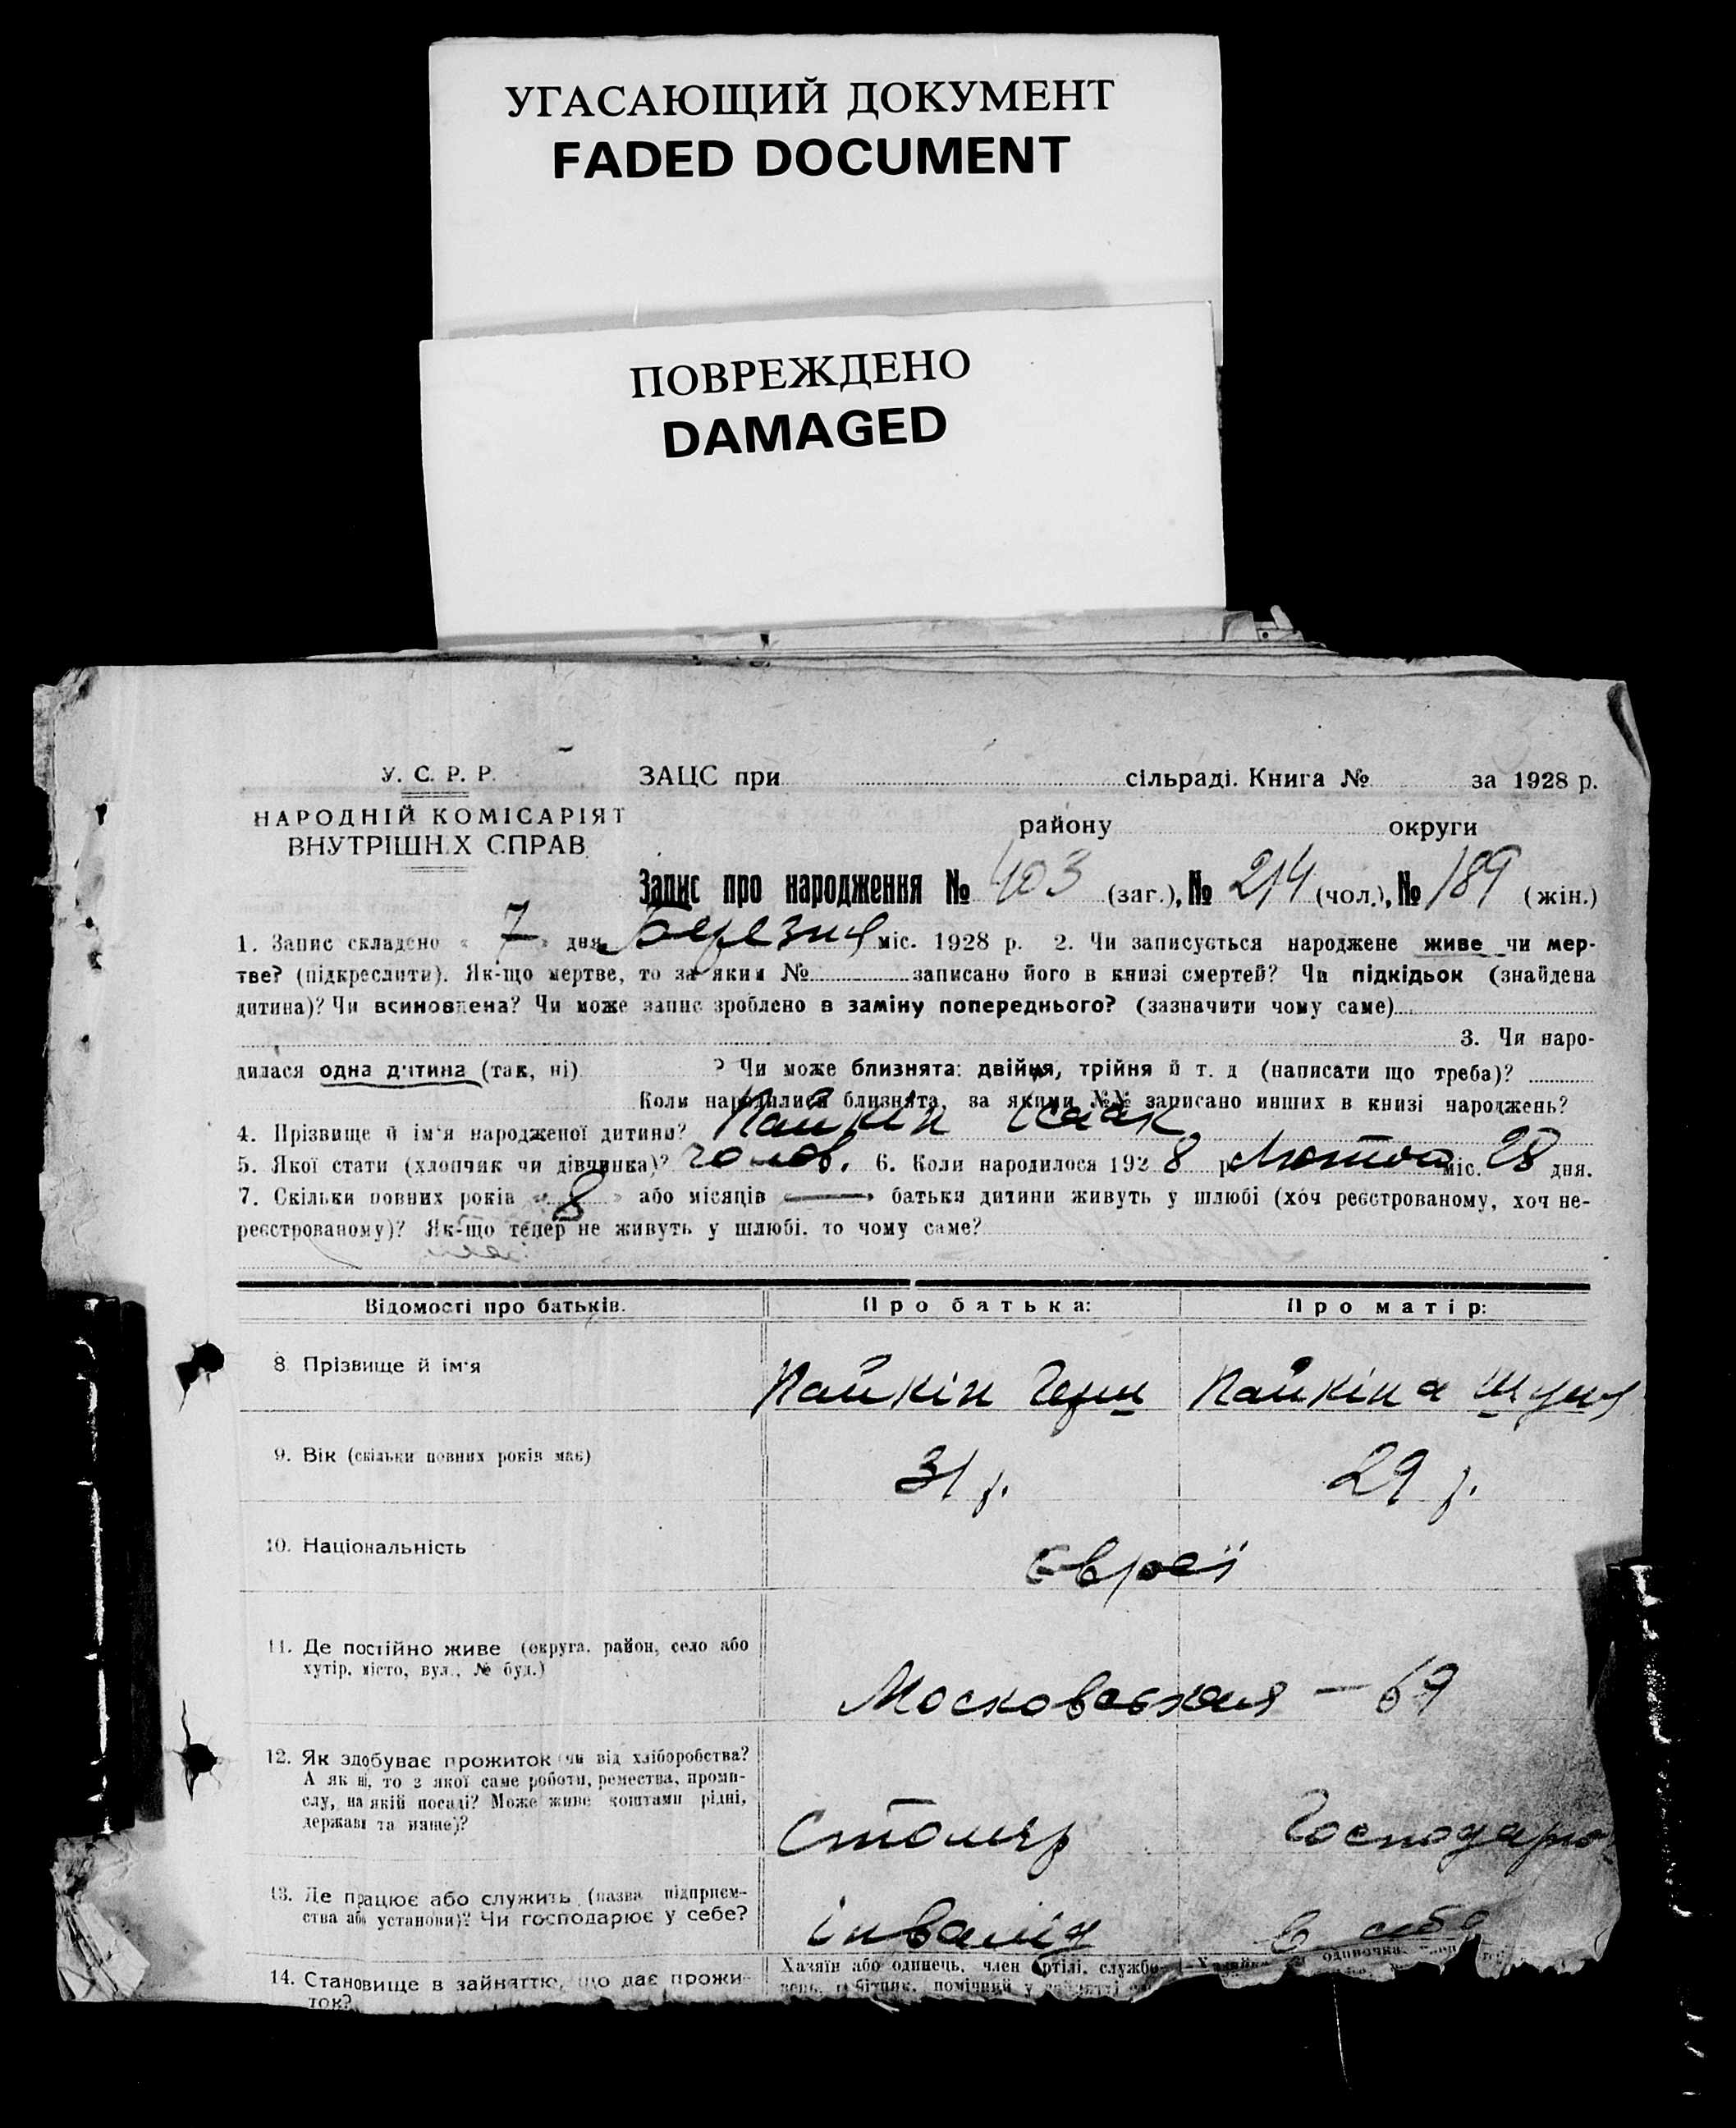 УГАСАЮЩИЙ ДОКУМЕНТ
FADED DOCUMENT
ПОВРЕЖДЕНО
DAMAGED
У. С. Р. Р.
НАРОДНІЙ КОМІСАРІЯТ
ВНУТРІШНІХ СПРАВ
ЗАЦС при сільраді. Книга № за 1928 р.
району округи
Запис про народження № 403 (заг.), № 214 (чол.), № 189 (жін.)
1. Запис складено « 7 » дня Березня міс. 1928 р. 2. Чи записується народжене живе чи мер-
тве? (підкреслити). Як-що мертве, то за яким № записано його в книзі смертей? Чи підкідьок (знайдена
дитина)? Чи всиновлена? Чи може запис зроблено в заміну попереднього? (зазначити чому саме)
3. Чи наро-
дилася одна дитина (так, ні) ? Чи може близнята: двійня, трійня й т. д (написати що треба)?
Коли народилися близнята, за якими №№ записано инших в книзі народжень?
4. Прізвище й ім'я народженої дитини? Пайкін Ісаак
5. Якої стати (хлопчик чи дівчинка)? чолов. 6. Коли народилося 192 8 р. Лютого міс. 28 дня.
7. Скільки повних років « 8 » або місяців — батьки дитини живуть у шлюбі (хоч реєстрованому, хоч не-
реєстрованому)? Як-що тепер не живуть у шлюбі, то чому саме?
Відомості про батьків. Про батька: Про матір:
8. Прізвище й ім'я Пайкін Герш Пайкіна
9. Вік (скільки повних років має) 31 р. 29 р.
10. Національність Євреї
11. Де постійно живе (округа, район, село або
хутір, місто, вул., № буд.)
Московська — 69
12. Як здобуває прожиток (чи від хліборобства?
А як ні, то з якої саме роботи, ремества, проми-
слу, на якій посаді? Може живе коштами рідні,
держави та инше)?
Столяр
13. Де працює або служить (назва підприєм-
ства або установи)? Чи господарює у себе?
інвалід в себе
14. Становище в зайняттю, що дає прожи-
ток?
Хазяїн або одинець, член артілі, службо-